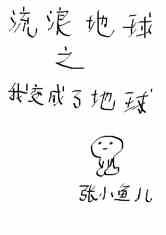 流浪地球
之
我变成了地球
张小鱼儿